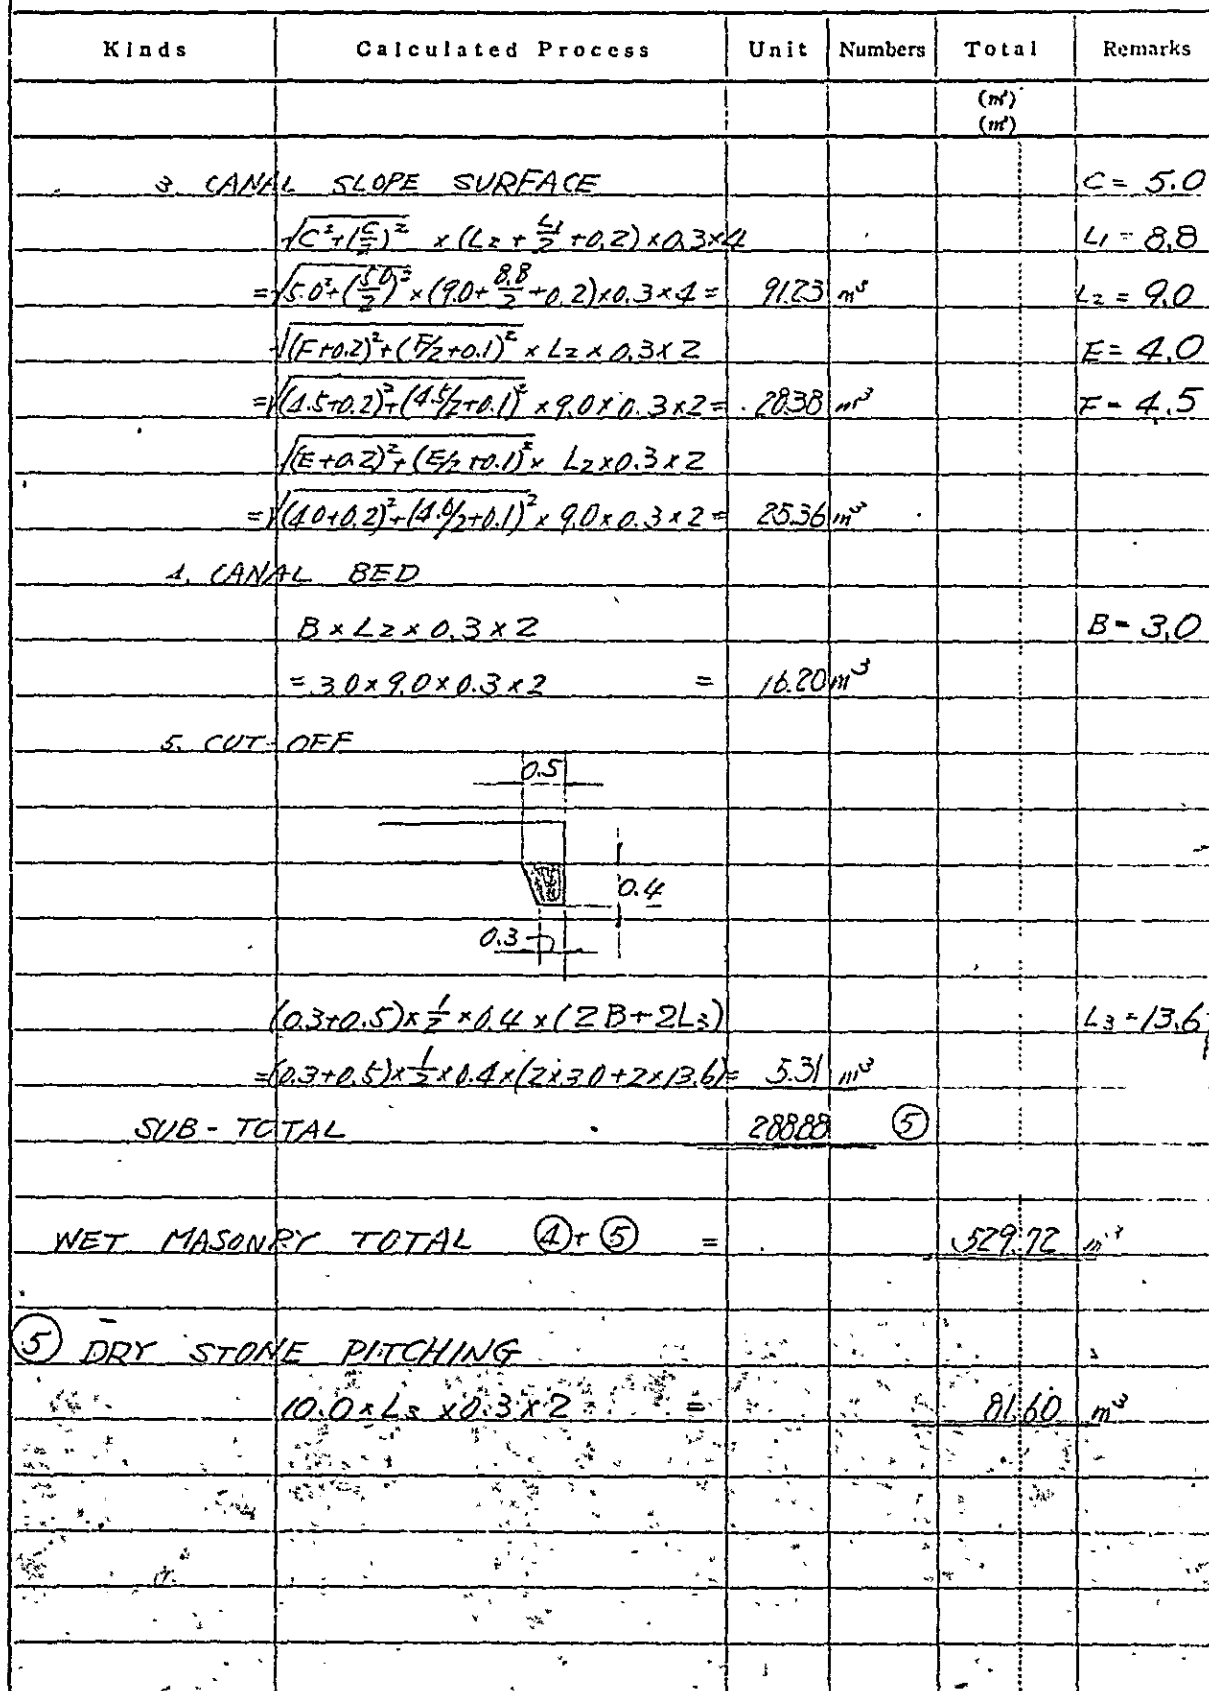 Kinds Calculated Process Unit Numbers Total Remarks
(m³)
(m³)
3. CANAL SLOPE SURFACE C = 5.0
√C²+(C/2)² × (L2 + L1/2 + 0.2) × 0.3 × 4 L1 = 8.8
= √5.0²+(5.0/2)² × (9.0 + 8.8/2 + 0.2) × 0.3 × 4 = 91.23 m³ L2 = 9.0
√(F+0.2)²+(F/2+0.1)² × L2 × 0.3 × 2 E = 4.0
= √(4.5+0.2)²+(4.5/2+0.1)² × 9.0 × 0.3 × 2 = 28.38 m³ F = 4.5
√(E+0.2)²+(E/2+0.1)² × L2 × 0.3 × 2
= √(4.0+0.2)²+(4.0/2+0.1)² × 9.0 × 0.3 × 2 = 25.36 m³
4. CANAL BED
B × L2 × 0.3 × 2 B = 3.0
= 3.0 × 9.0 × 0.3 × 2 = 16.20 m³
5. CUT-OFF
0.5
0.4
0.3
(0.3+0.5) × 1/2 × 0.4 × (2B+2L3) L3 = 13.6
= (0.3+0.5) × 1/2 × 0.4 × (2×3.0+2×13.6) = 5.31 m³
SUB-TOTAL 288.88 ⑤
WET MASONRY TOTAL ④+⑤ = 529.72 m³
⑤ DRY STONE PITCHING
10.0 × L3 × 0.3 × 2 = 81.60 m³